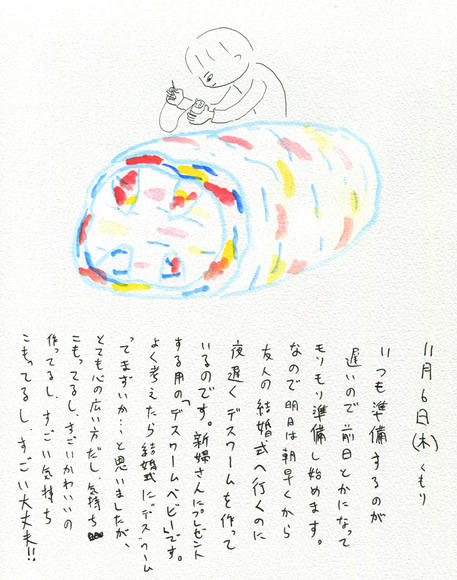 11月6日(木)くもり
いつも準備するのが
遅いので前日とかになって
モリモリ準備し始めます。
なので明日は朝早くから
友人の結婚式へ行くのに
夜遅くデスワームを作って
いるのです。新婦さんにプレゼント
する用の「デスワームベビー」です。
よく考えたら結婚式にデスワーム
ってまずいか…と思いましたが、
とても心の広い方だし、気持ち
こもってるし、すごいかわいいの
作ってるし、すごい気持ち
こもってるし、すごい大丈夫!!